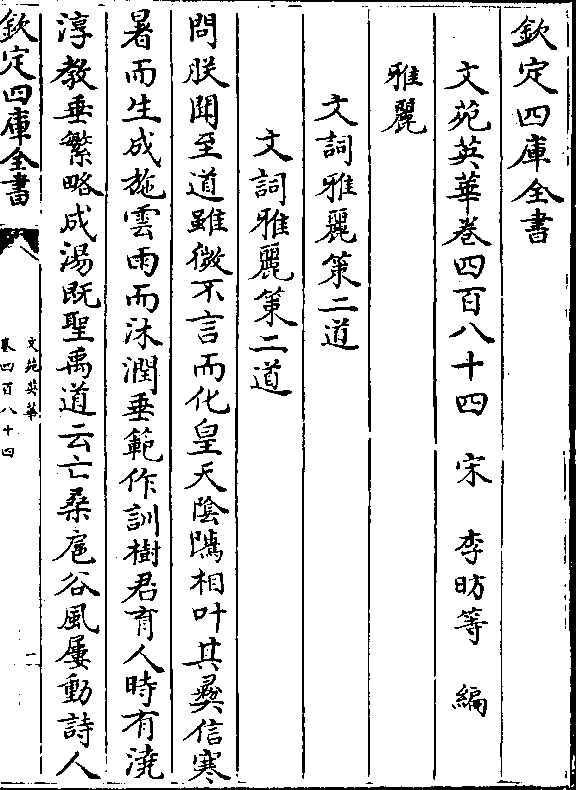 欽定四庫全書
文苑英華卷四百八十四　宋　李昉等　編
雅麗
文詞雅麗策二道
文詞雅麗策二道
問朕聞至道雖微不言而化皇天陰隲相叶其彛信寒
暑而生成施雲雨而沐潤垂範作訓樹君育人時有澆
淳教垂繁略成湯既聖禹道云亡桑扈谷風屢動詩人
欽定四庫全書
文苑英華
卷四百八十四
二